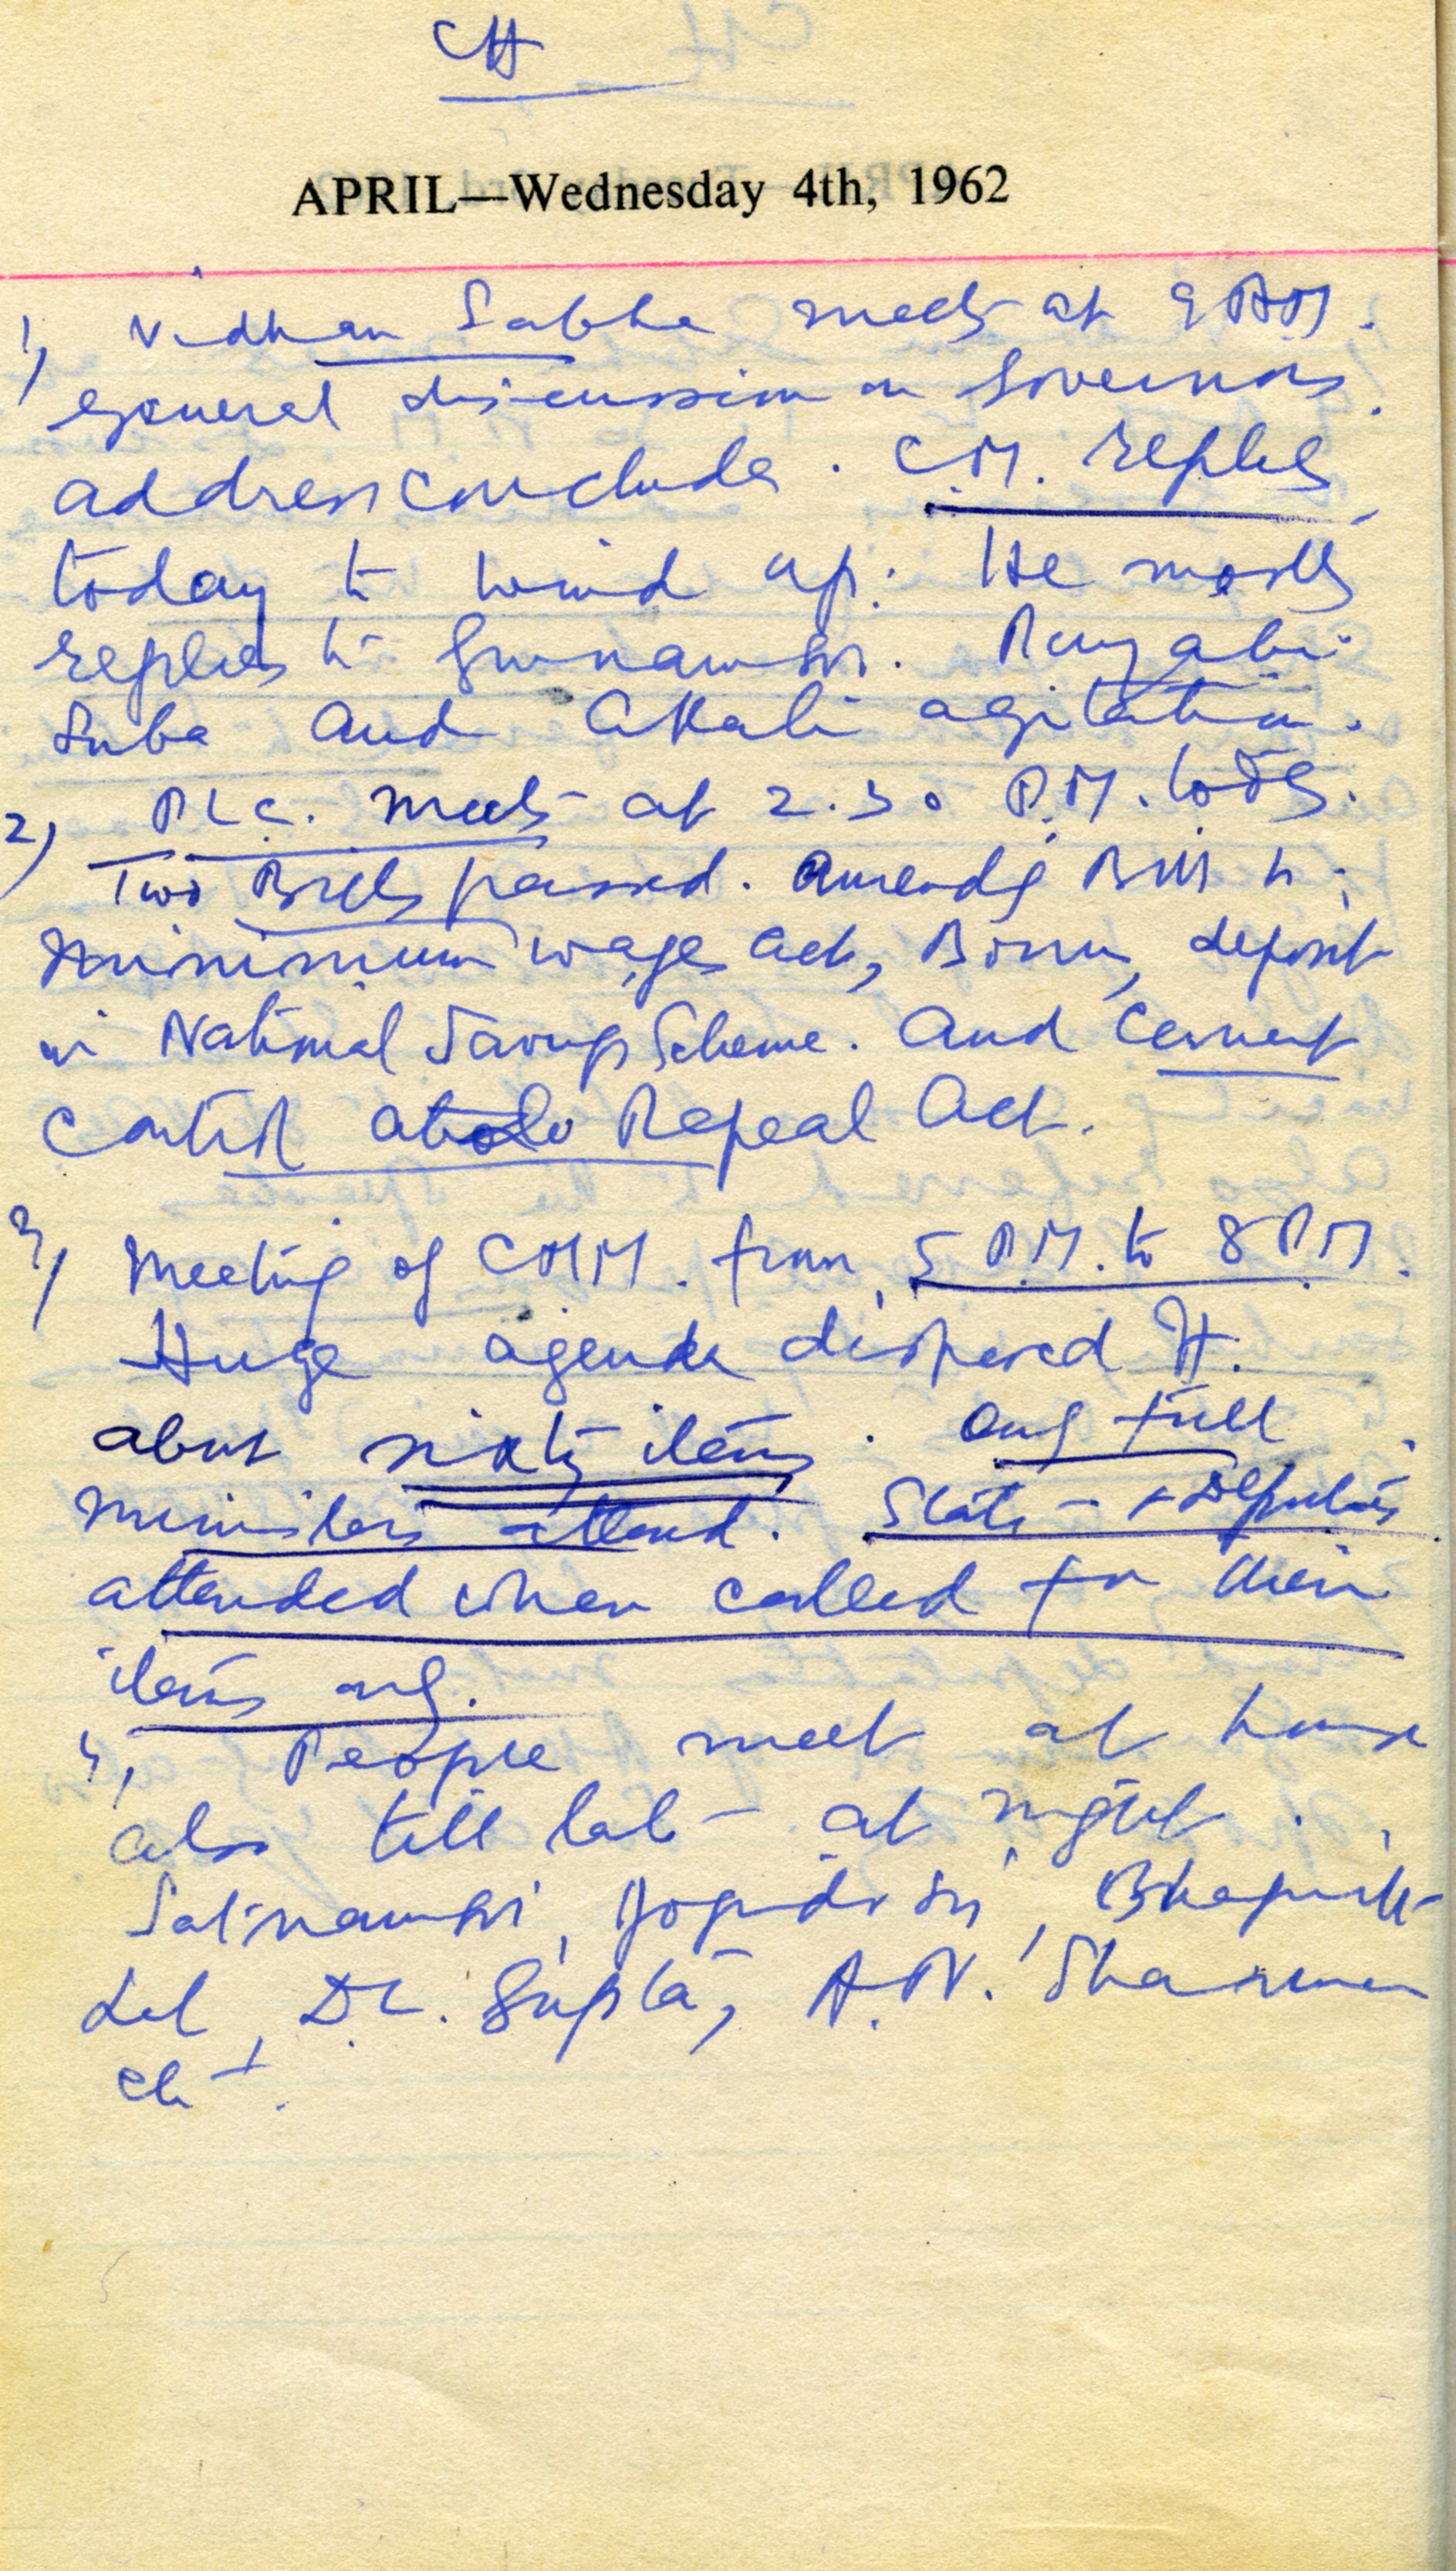 CH
APRIL—Wednesday 4th, 1962
1) Vidhan Sabha meets at 9 AM.
general discussion on Governors
address conclude. C.M. replies
today to wind up. He mostly
replies to Gurnam Sn. Punjabi
Suba and Akali agitation.
2) P.L.C. meets at 2.30 P.M. today.
Two Bills passed. Amendg Bill to
Minimum wages act, Bonus, deposit
in National Savings Scheme. And Cement
Control Repeal Act.
3) Meeting of CMM. from 5 P.M. to 8 P.M.
Huge agenda disposed
about sixty items. Only full
ministers attend. State - + Deputies
attended when called for their
items only.
4, People meet at house
also till late at night.
Satnam Sn, Jogindr Sn, Bhagirath
Lal, D.C. Gupta, A.N. Sharma
etc.